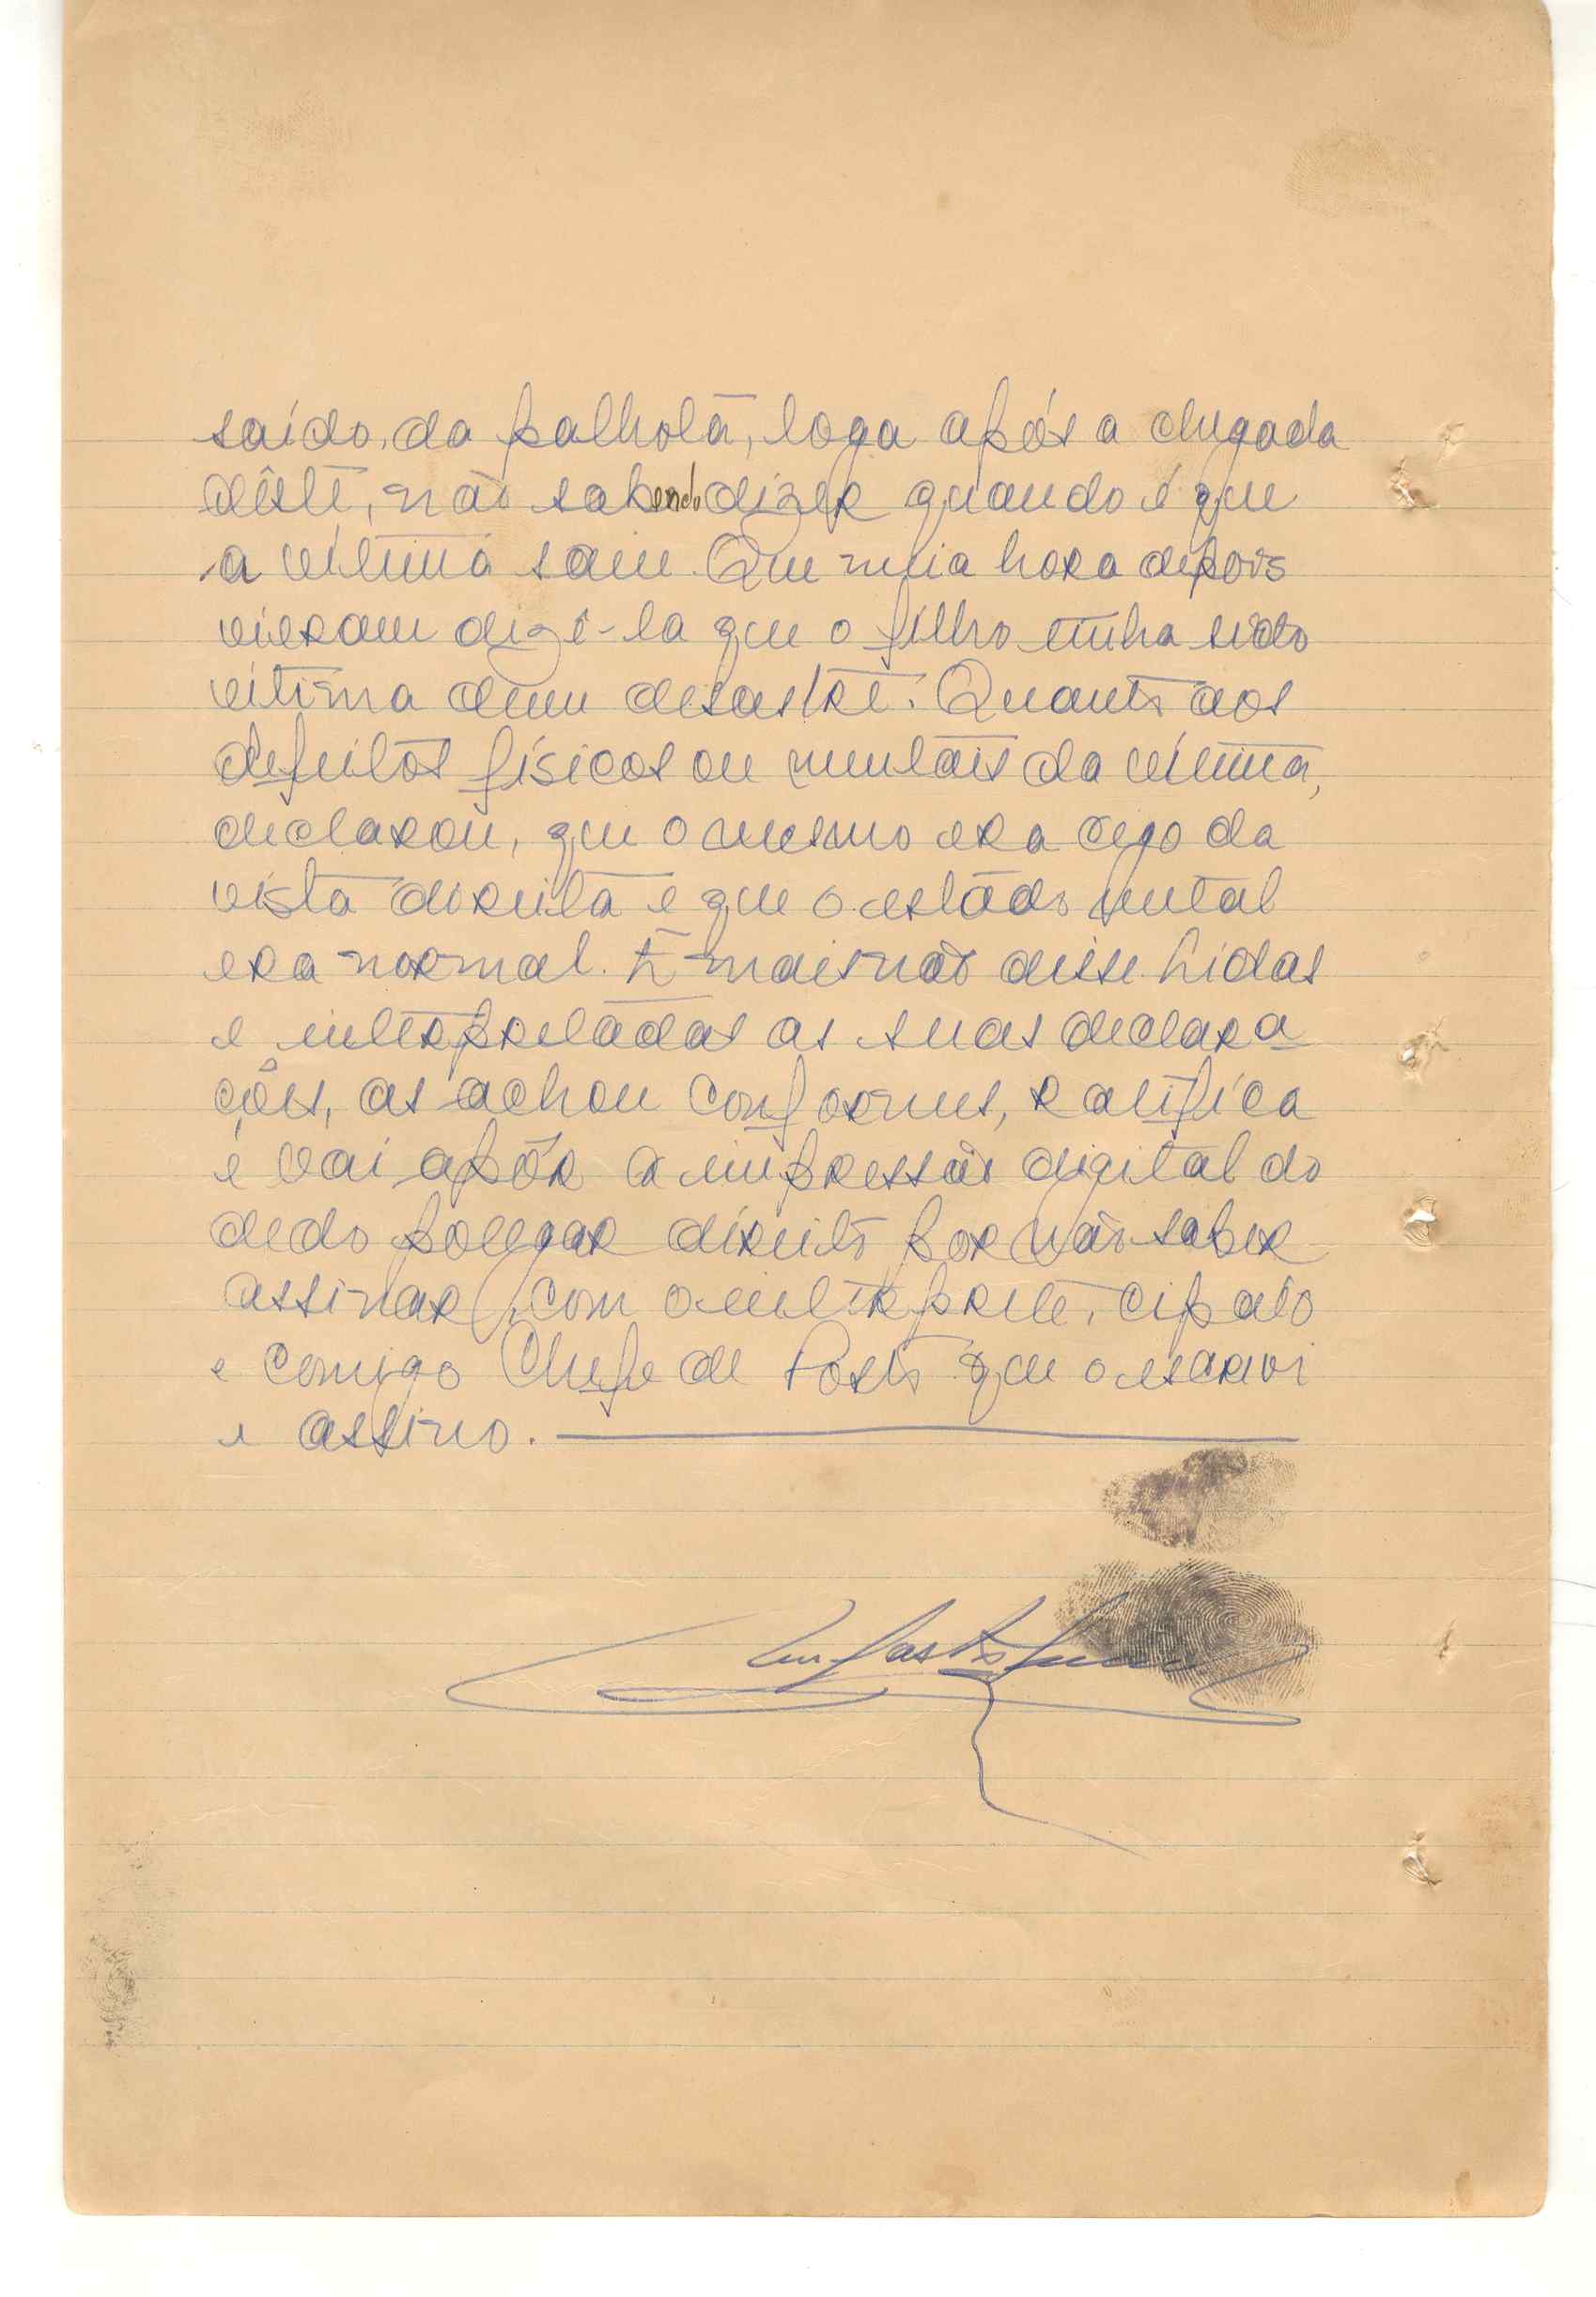 saído, da palhota, loga após a chegada
dêste, não sabendo dizer quando é que
a vítima saiu. Que meia hora depois
vieram dizê-la que o filho tinha sido
vítima dum desastre. Quanto aos
defeitos físicos ou mentais da vítima,
declarou, que o mesmo era cego da
vista direita e que o estado mental
era normal. E mais não disse. Lidas
e interpretadas as suas declara
ções, as achou conformes, ratifica
e vai apôr a impressão digital do
dedo polegar direito por não saber
assinar, com o intérprete, cipaio
e comigo Chefe de Posto que o escrevi
e assino.